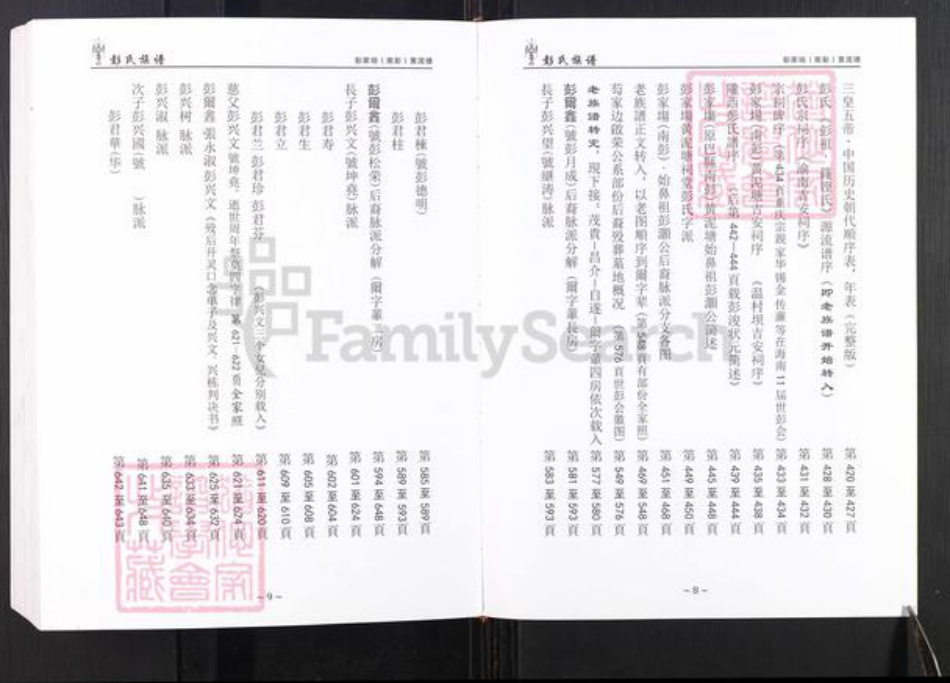 彭氏族谱
三皇五帝·中国历史朝代顺序表，年表（完整版） 第 420 至 427 頁
彭氏（彭祖·籛铿氏）源流谱序（即老族谱开始转入） 第 428 至 430 頁
彭氏宗祠序（渝南吉安祠序） 第 431 至 432 頁
宗祠牌序（第 434 頁重庆宗親家华锡金传廉等在海南 11 届世彭会） 第 433 至 434 頁
彭家塲（南彭）黄泥塘吉安祠序 （温村坝吉安祠序） 第 435 至 438 頁
隴西彭氏譜序 （后第 442－444 頁載彭浚状元简述） 第 439 至 444 頁
彭家塲（原巴縣南彭）黄泥塘始鼻祖彭灝公簡述 第 445 至 448 頁
彭家塲黄泥塘祠堂彭氏字派 第 449 至 450 頁
彭家塲（南彭）·始鼻祖彭灝公后裔脉派分支各图 第 451 至 468 頁
老族譜正文转入，以老图順序到爾字辈（第 548 頁有部份全家照） 第 469 至 548 頁
苟家边啟荣公系部份后裔殁葬墓地概况 （第 576 頁世彭会徽图） 第 549 至 576 頁
老族谱转完，现下接：茂貴－昌介－自遂－爾字輩四房依次载入 第 577 至 580 頁
彭爾鑫（號彭月成）后裔脉派分解（爾字輩長房） 第 581 至 593 頁
長子彭兴望（號继涛）脉派 第 583 至 593 頁
－8－
彭氏族谱
彭君棟（號彭德明） 第 585 至 589 頁
彭君柱 第 589 至 593 頁
彭爾鑫（號彭松荣）后裔脉派分解（爾字輩二房） 第 594 至 648 頁
長子彭兴文（號坤堯）脉派 第 601 至 624 頁
彭君寿 第 602 至 604 頁
彭君生 第 605 至 608 頁
彭君立 第 609 至 610 頁
彭君兰 彭君珍 彭君芬 （彭兴文三个女兒分别載入） 第 611 至 620 頁
慈父彭兴文號坤堯：逝世周年祭奠四字律 第 621－622 頁全家照 第 621 至 624 頁
彭爾鑫 張水淑 彭兴文（殁后开灵口念單子及兴文、兴栋判决书） 第 625 至 632 頁
彭兴树 脉派 第 633 至 634 頁
彭兴淑 脉派 第 635 至 640 頁
次子彭兴國（號 ）脉派 第 641 至 648 頁
彭君華（华） 第 642 至 643 頁
－9－
FamilySearch